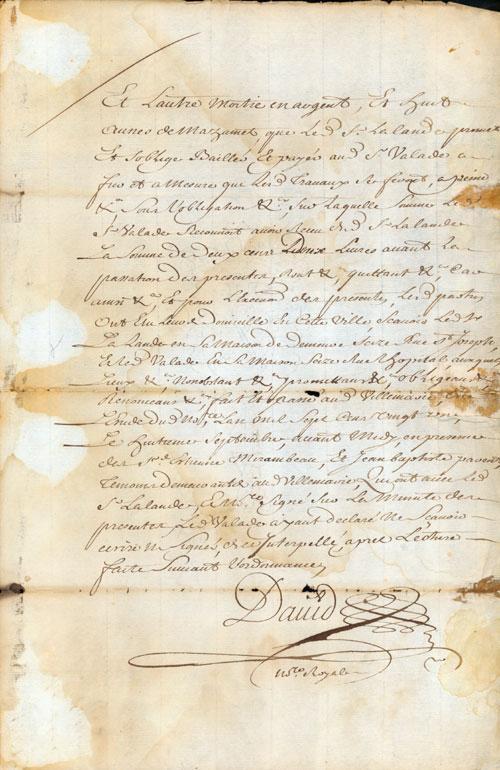 Et Lautre Moitié en argent, Et huit
aunes de Mazamet que led Sr Lalande promet
Et soblige Bailler Et payer aud Sr Valade a
fur et a Mesure que Lesd Travaux se feront, a peine
&a Sous Lobligation &a, Sur Laquelle Somme Led
Sr Valade Reconnoit avoir Receu dud Sr Lalande
La Somme de deux cens Deux Livres avant La
passation des presentes, dont &a, quittant &a Car
ainsi &a Et pour Lexecution des presentes Les parties
Ont Elu Leur Domicille En Cette Ville, Scavoir Led Sr
La Lande en Sa Maison de demeure Size Rue St Joseph
Et led Valade En Sa Maison Size Rue Hopital auxquels
Lieux &a Nonobstant &a promettant &a obligeant &a
Renonceant &a fait Et passé aud Villemarie
Letude dud Nore Lan Mil Sept Cens Vingt
Le huitieme Septembre avant Midy, en presence
des Srs Estienne Mirambeau, Et Jean baptiste
Temoins demeurants aud Villemarie Qui ont avec led
Sr Lalande, Et Nore Signé Sur La Minute des
presentes Led Valade ayant declaré Ne Scavoir
ecrire Ny Signer, de ce Interpellé, apres Lecture
faite Suivant Lordonnance,
David
Nore Royale